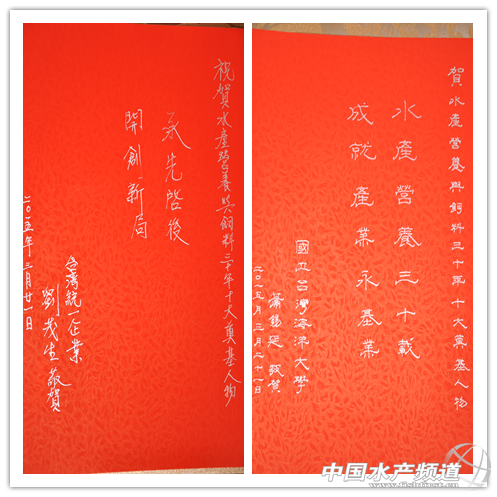 祝賀水產營養與飼料三十年十大奠基人物
承先啓後
開創新局
台灣統一企業
劉茂生敬賀
二〇一五年三月廿一日
賀水產營養與飼料三十年十大奠基人物
水產營養三十載
成就產業永基業
國立台灣海洋大學
蕭錫延敬賀
二〇一五年三月二十一日
中国水产频道